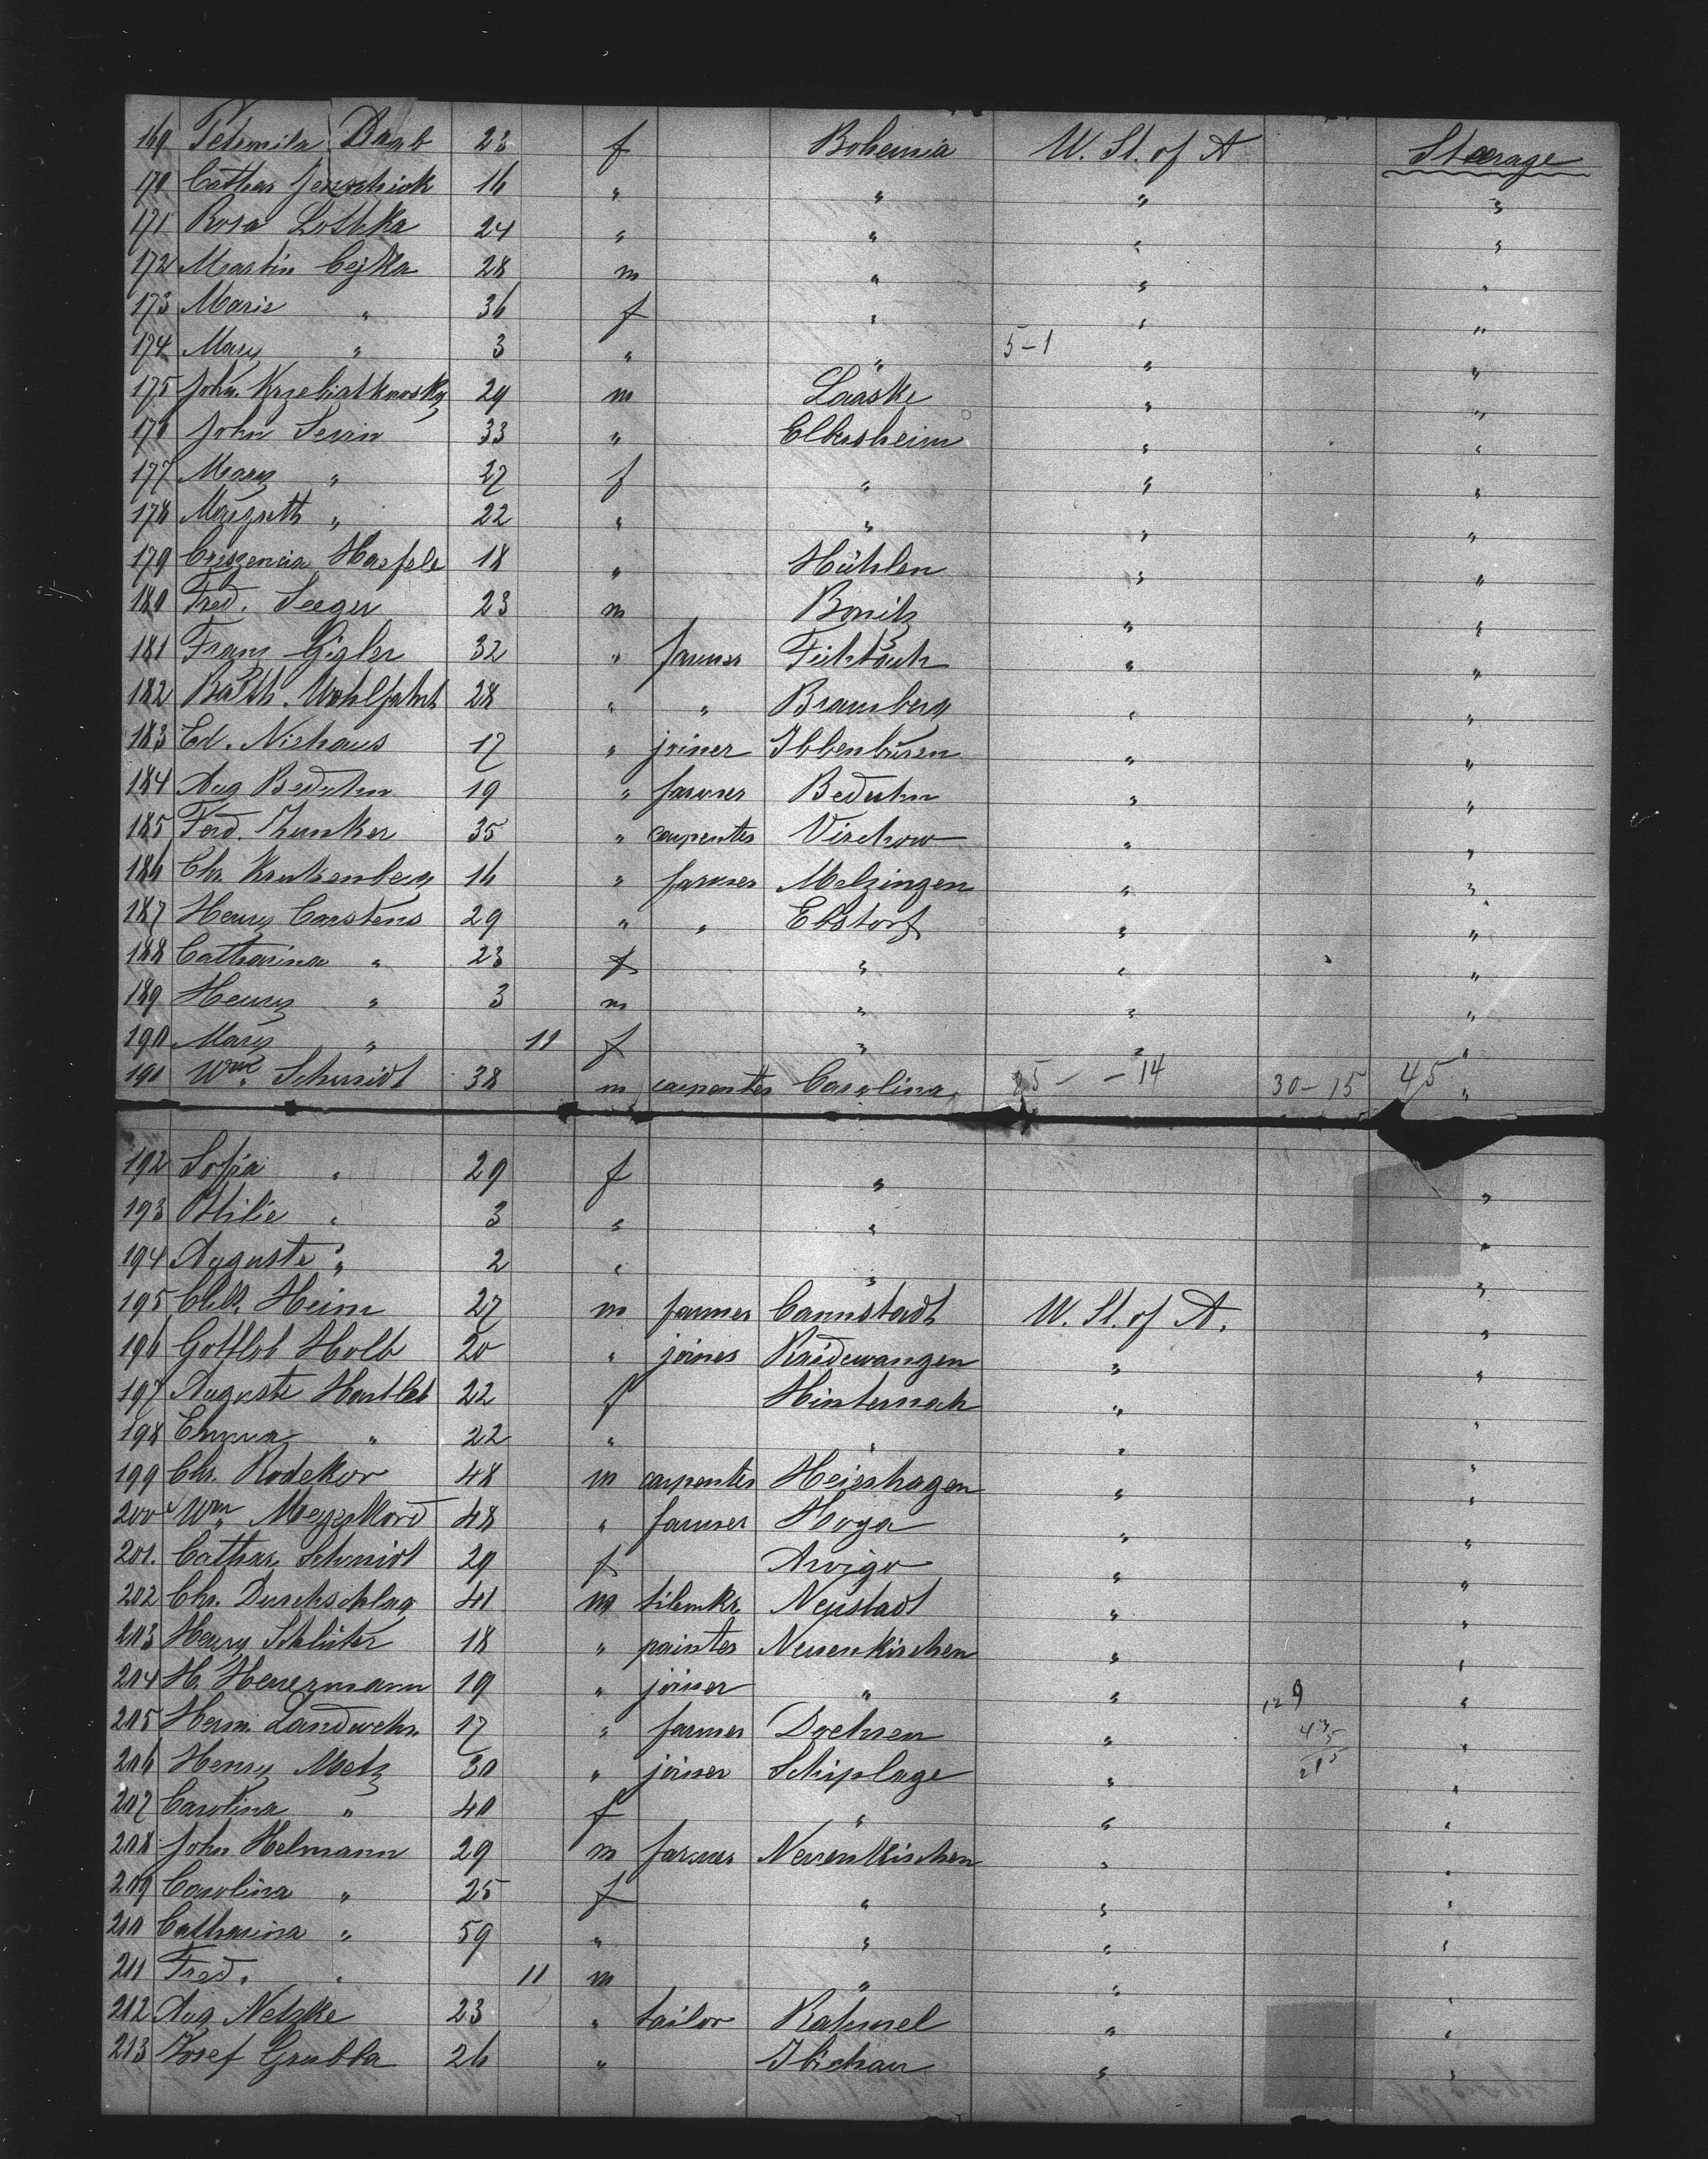 169 Petromila Draab 23 f Bohemia W. St. of A Steerage
170 Cathar 16 " " " "
171 Rosa Lothka 24 " " " "
172 Martin Cejka 28 m " " "
173 Marie " 36 f " " "
174 Mary " 3 " " 5-1 " "
175 John 29 m Laaske " "
176 John Serin 33 " Elbersheim " "
177 Mary " 27 f " " "
178 Margreth " 22 " " " "
179 Creszencia Haefele 18 " Hühlen " "
180 Fred. Seeger 23 m Bonitz " "
181 Franz Gigler 32 " farmer " "
182 Balth. Wohlfahrt 28 " " Bramberg " "
183 Ed. Niehaus 17 " joiner Ibbenbüren " "
184 Aug Beduhn 19 " farmer Beduhn " "
185 Ferd. Zunker 35 " carpenter Virchow " "
186 Chr. Krukenberg 16 " farmer Melzingen " "
187 Henry Carstens 29 " " Ebstorf " "
188 Catharina " 23 f " " "
189 Henry " 3 m " " "
190 Mary " 11 f " " "
191 Wm. Schmidt 38 m carpenter Carolina 25 - - 14 30-15 45 "
192 Sofia " 29 f " "
193 Ottilie " 3 " " "
194 Auguste " 2 " " "
195 Heim 27 m farmer Cannstadt W. St. of A. "
196 Gottlob Holb 20 " joiner Raidwangen " "
197 Auguste Hartleb 22 f Hinternah " "
198 Emma " 22 " " " "
199 Chr. Rodekor 48 m carpenter Heiershagen " "
200 Wm. Meyer 48 " farmer Hoya " "
201. Cathar. Schmidt 29 f Arvigo " "
202 Chr. Durchschlag 41 m Neustadt " "
203 Henry Schlüter 18 " painter Neuenkirchen " "
204 H. Heuermann 19 " joiner " " 12 9 "
205 Herm. Landwehr 17 " farmer Drehsen " 43 "
206 Henry Metz 30 " joiner Schiplage " "
207 Carolina " 40 f " " "
208 John Helmann 29 m farmer Neuenkirchen " "
209 Carolina " 25 f " " "
210 Catharina " 59 " " " "
211 Fred. " 11 m " " "
212 Aug Netzke 23 " tailor Rahmel " "
213 Josef Grubba 26 " " "